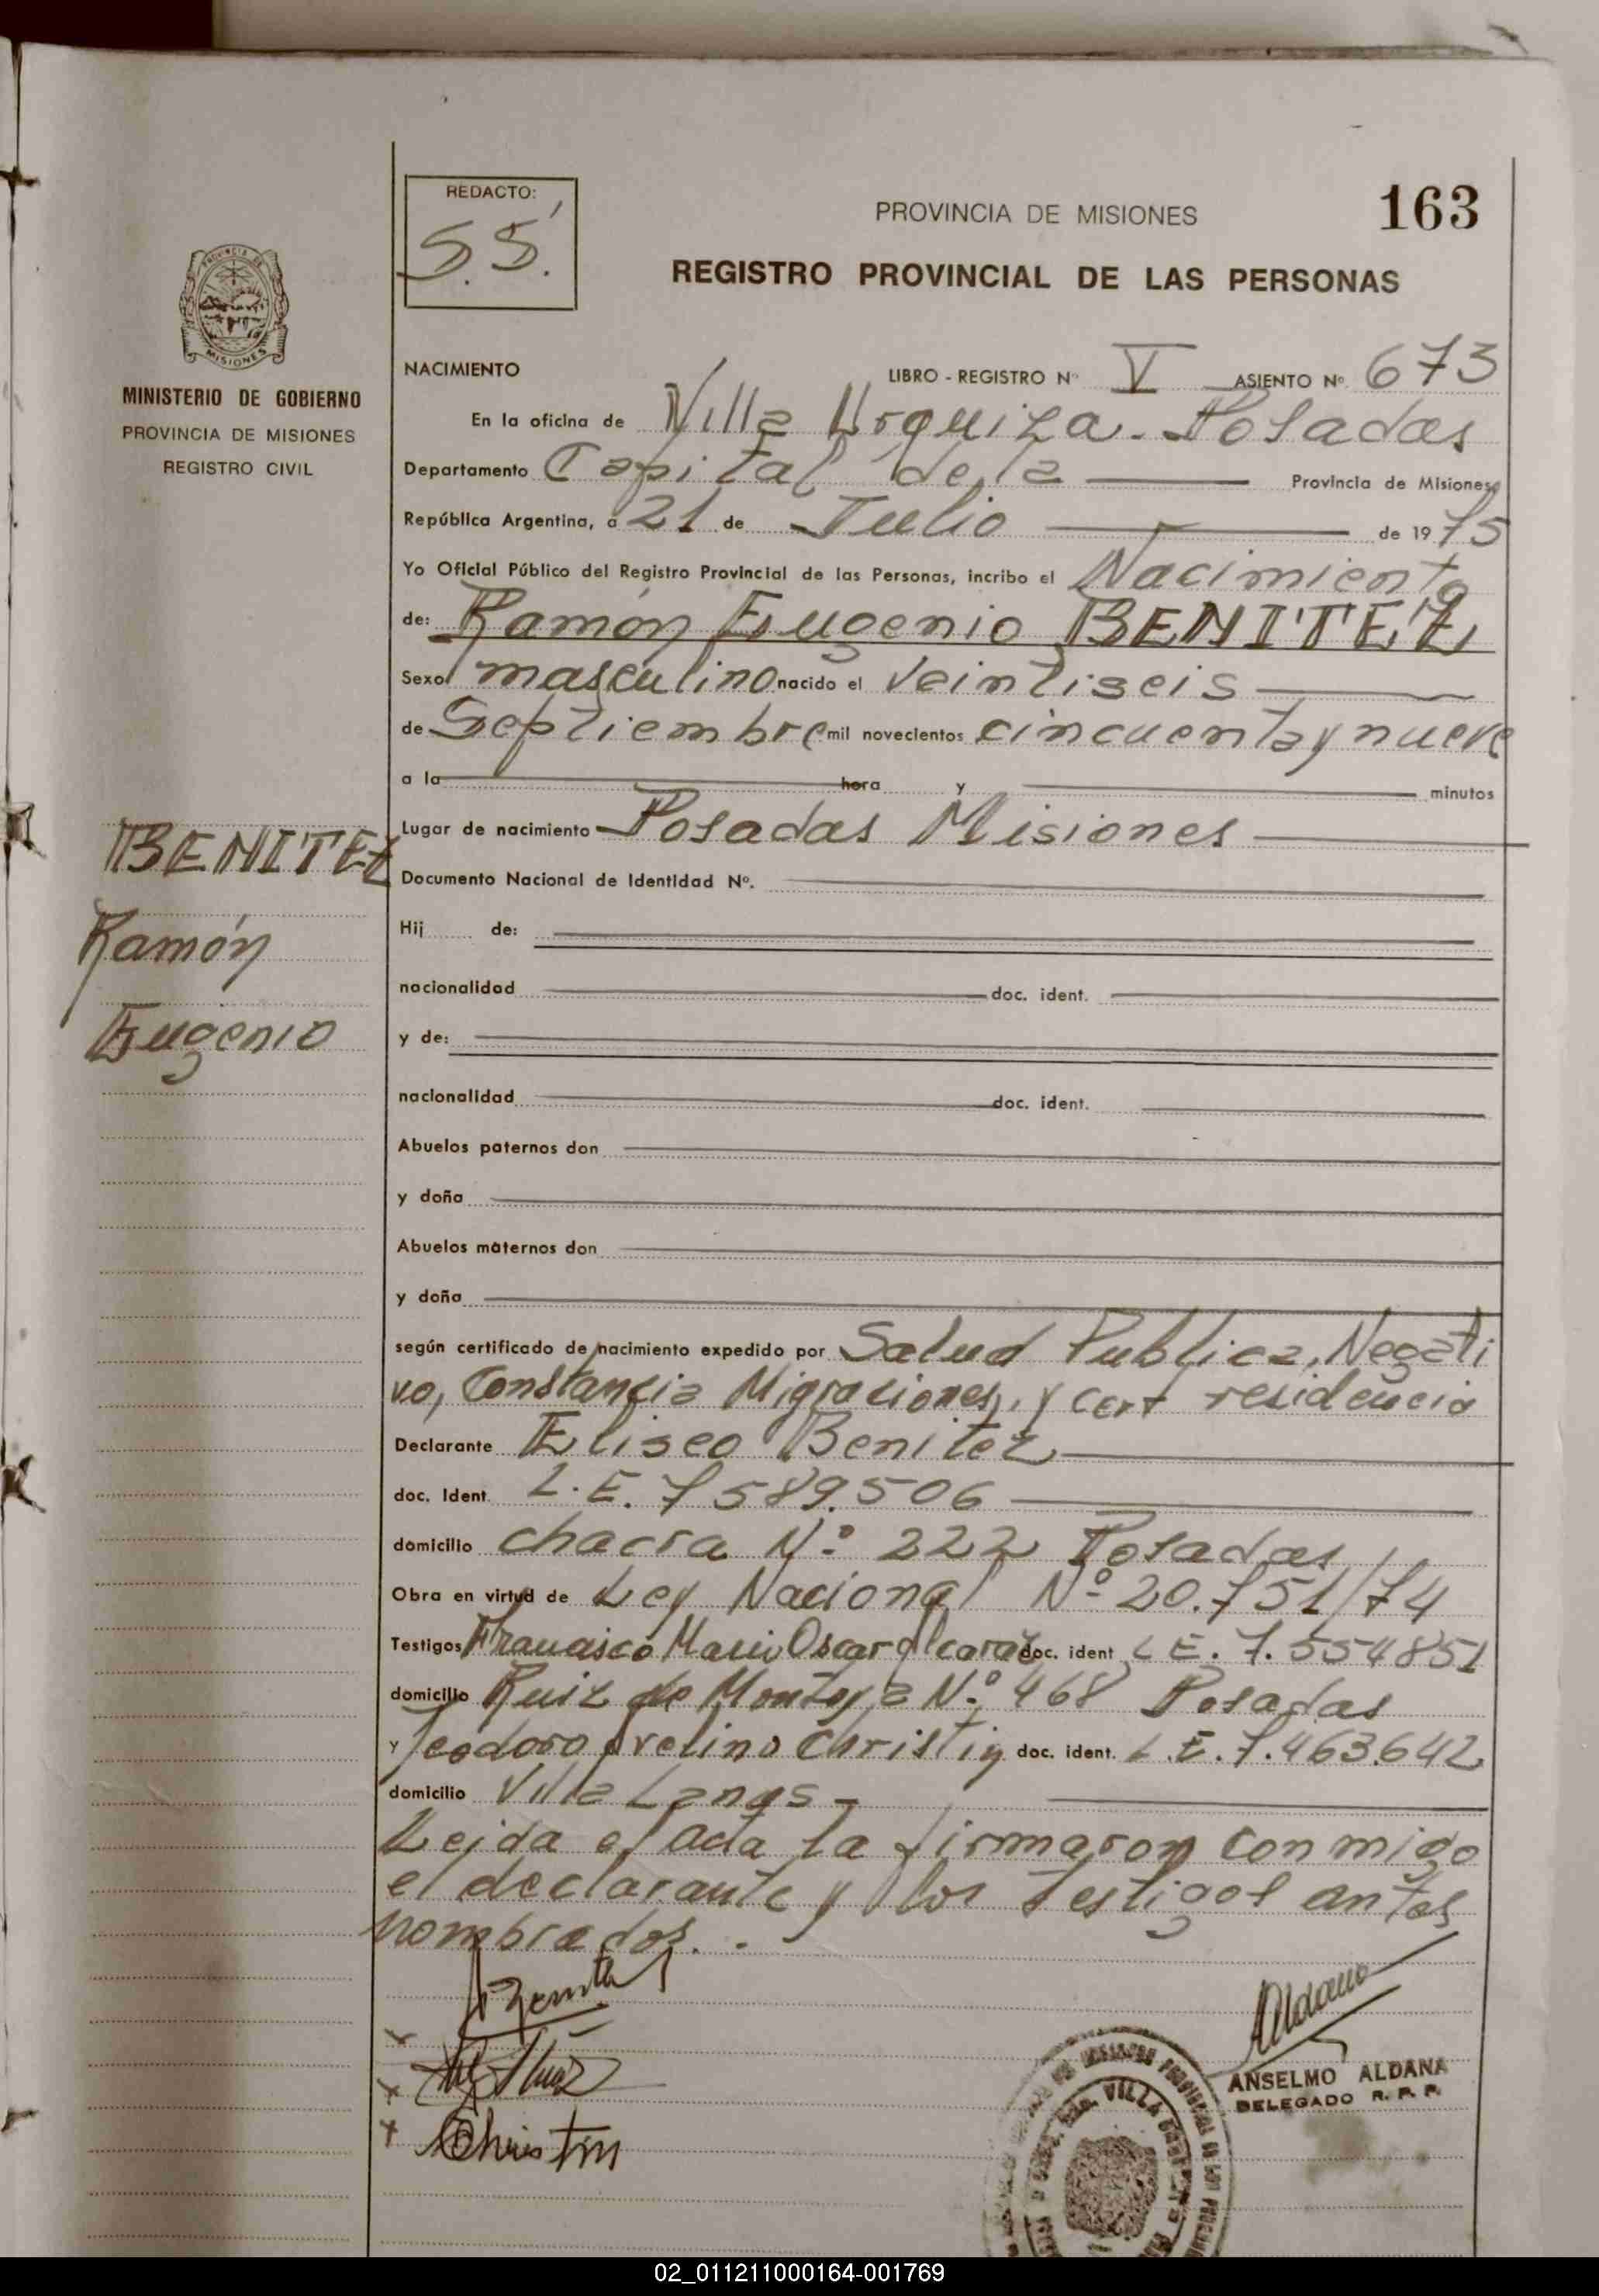 REDACTO:
S.S.
PROVINCIA DE MISIONES
163
REGISTRO PROVINCIAL DE LAS PERSONAS
PROVINCIA DE
MISIONES
MINISTERIO DE GOBIERNO
PROVINCIA DE MISIONES
REGISTRO CIVIL
NACIMIENTO LIBRO - REGISTRO Nº V ASIENTO Nº 673
En la oficina de Villa Urquiza - Posadas
Departamento Capital de la Provincia de Misiones
República Argentina, a 21 de Julio de 1975
Yo Oficial Público del Registro Provincial de las Personas, incribo el Nacimiento
de: Ramón Eugenio BENITEZ
Sexo masculino nacido el veintiseis
de Septiembre mil novecientos cincuenta y nueve
a la hora y minutos
Lugar de nacimiento Posadas Misiones
BENITEZ
Ramón
Eugenio
Documento Nacional de Identidad Nº.
Hij de:
nacionalidad doc. ident.
y de:
nacionalidad doc. ident.
Abuelos paternos don
y doña
Abuelos maternos don
y doña
según certificado de nacimiento expedido por Salud Publica, Negati
vo, Constancia Migraciones, y cert residencia
Declarante Eliseo Benitez
doc. Ident. L.E. 7589.506
domicilio chacra Nº 222 Posadas
Obra en virtud de Ley Nacional Nº 20.751/74
Testigos Francisco Mario Oscar Alcaraz doc. ident L E. 7.554851
domicilio Ruiz de Montoya Nº 468 Posadas
y Teodoro Avelino Christin doc. ident. L.E. 7.463.642
domicilio Villa Lanus -
Leida el acta la firmaron conmigo
el declarante y los testigos antes
nombrados. -
Benitez
Aldana
ANSELMO ALDANA
DELEGADO R. P. P.
Christin
VILLA
02_011211000164-001769